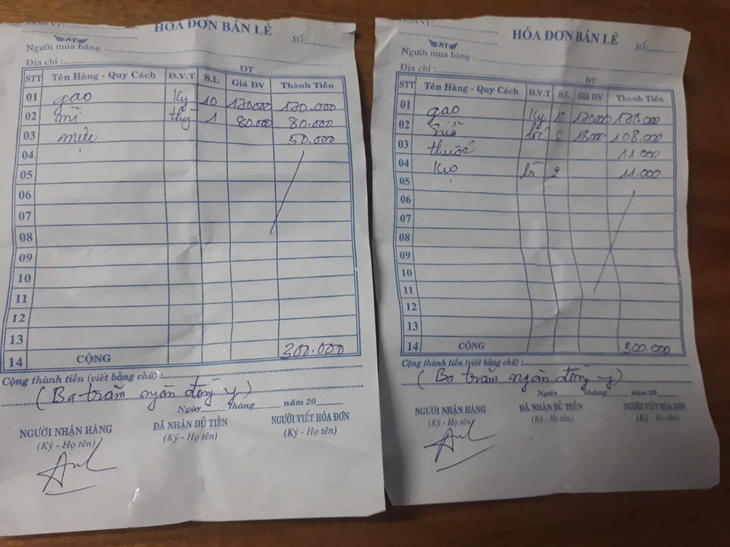 HÓA ĐƠN BÁN LẺ
SỐ:
NT
Người mua hàng
Địa chỉ : ĐT :
STT Tên Hàng - Quy Cách Đ.V.T S.L Giá ĐV Thành Tiền
01 gạo Ký 10 120.000 120.000
02 mì thùy 1 80.000 80.000
03 mước 50.000
04
05
06
07
08
09
10
11
12
13
14 CỘNG 300.000
Cộng thành tiền (viết bằng chữ)
(Ba trăm ngàn đồng y)
Ngày tháng năm 20
NGƯỜI NHẬN HÀNG ĐÃ NHẬN ĐỦ TIỀN NGƯỜI VIẾT HÓA ĐƠN
(Ký - Họ tên) (Ký - Họ tên)
HÓA ĐƠN BÁN LẺ
Số:
NT
Người mua hàng
Địa chỉ : ĐT
STT Tên Hàng - Quy Cách Đ.V.T S.L Giá ĐV Thành Tiền
01 gạo Ký 10 12000 120.000
02 lốc 6 18000 108.000
03 thuốc 11.000
04 Kẹo 2 11.000
05
06
07
08
09
10
11
12
13
14 CỘNG 300.000
Cộng thành tiền (viết bằng chữ) :
(Ba trăm ngàn đồng y)
Ngày tháng năm 20
NGƯỜI NHẬN HÀNG ĐÃ NHẬN ĐỦ TIỀN NGƯỜI VIẾT HÓA ĐƠN
(Ký - Họ tên) (Ký - Họ tên) (Ký - Họ tên)